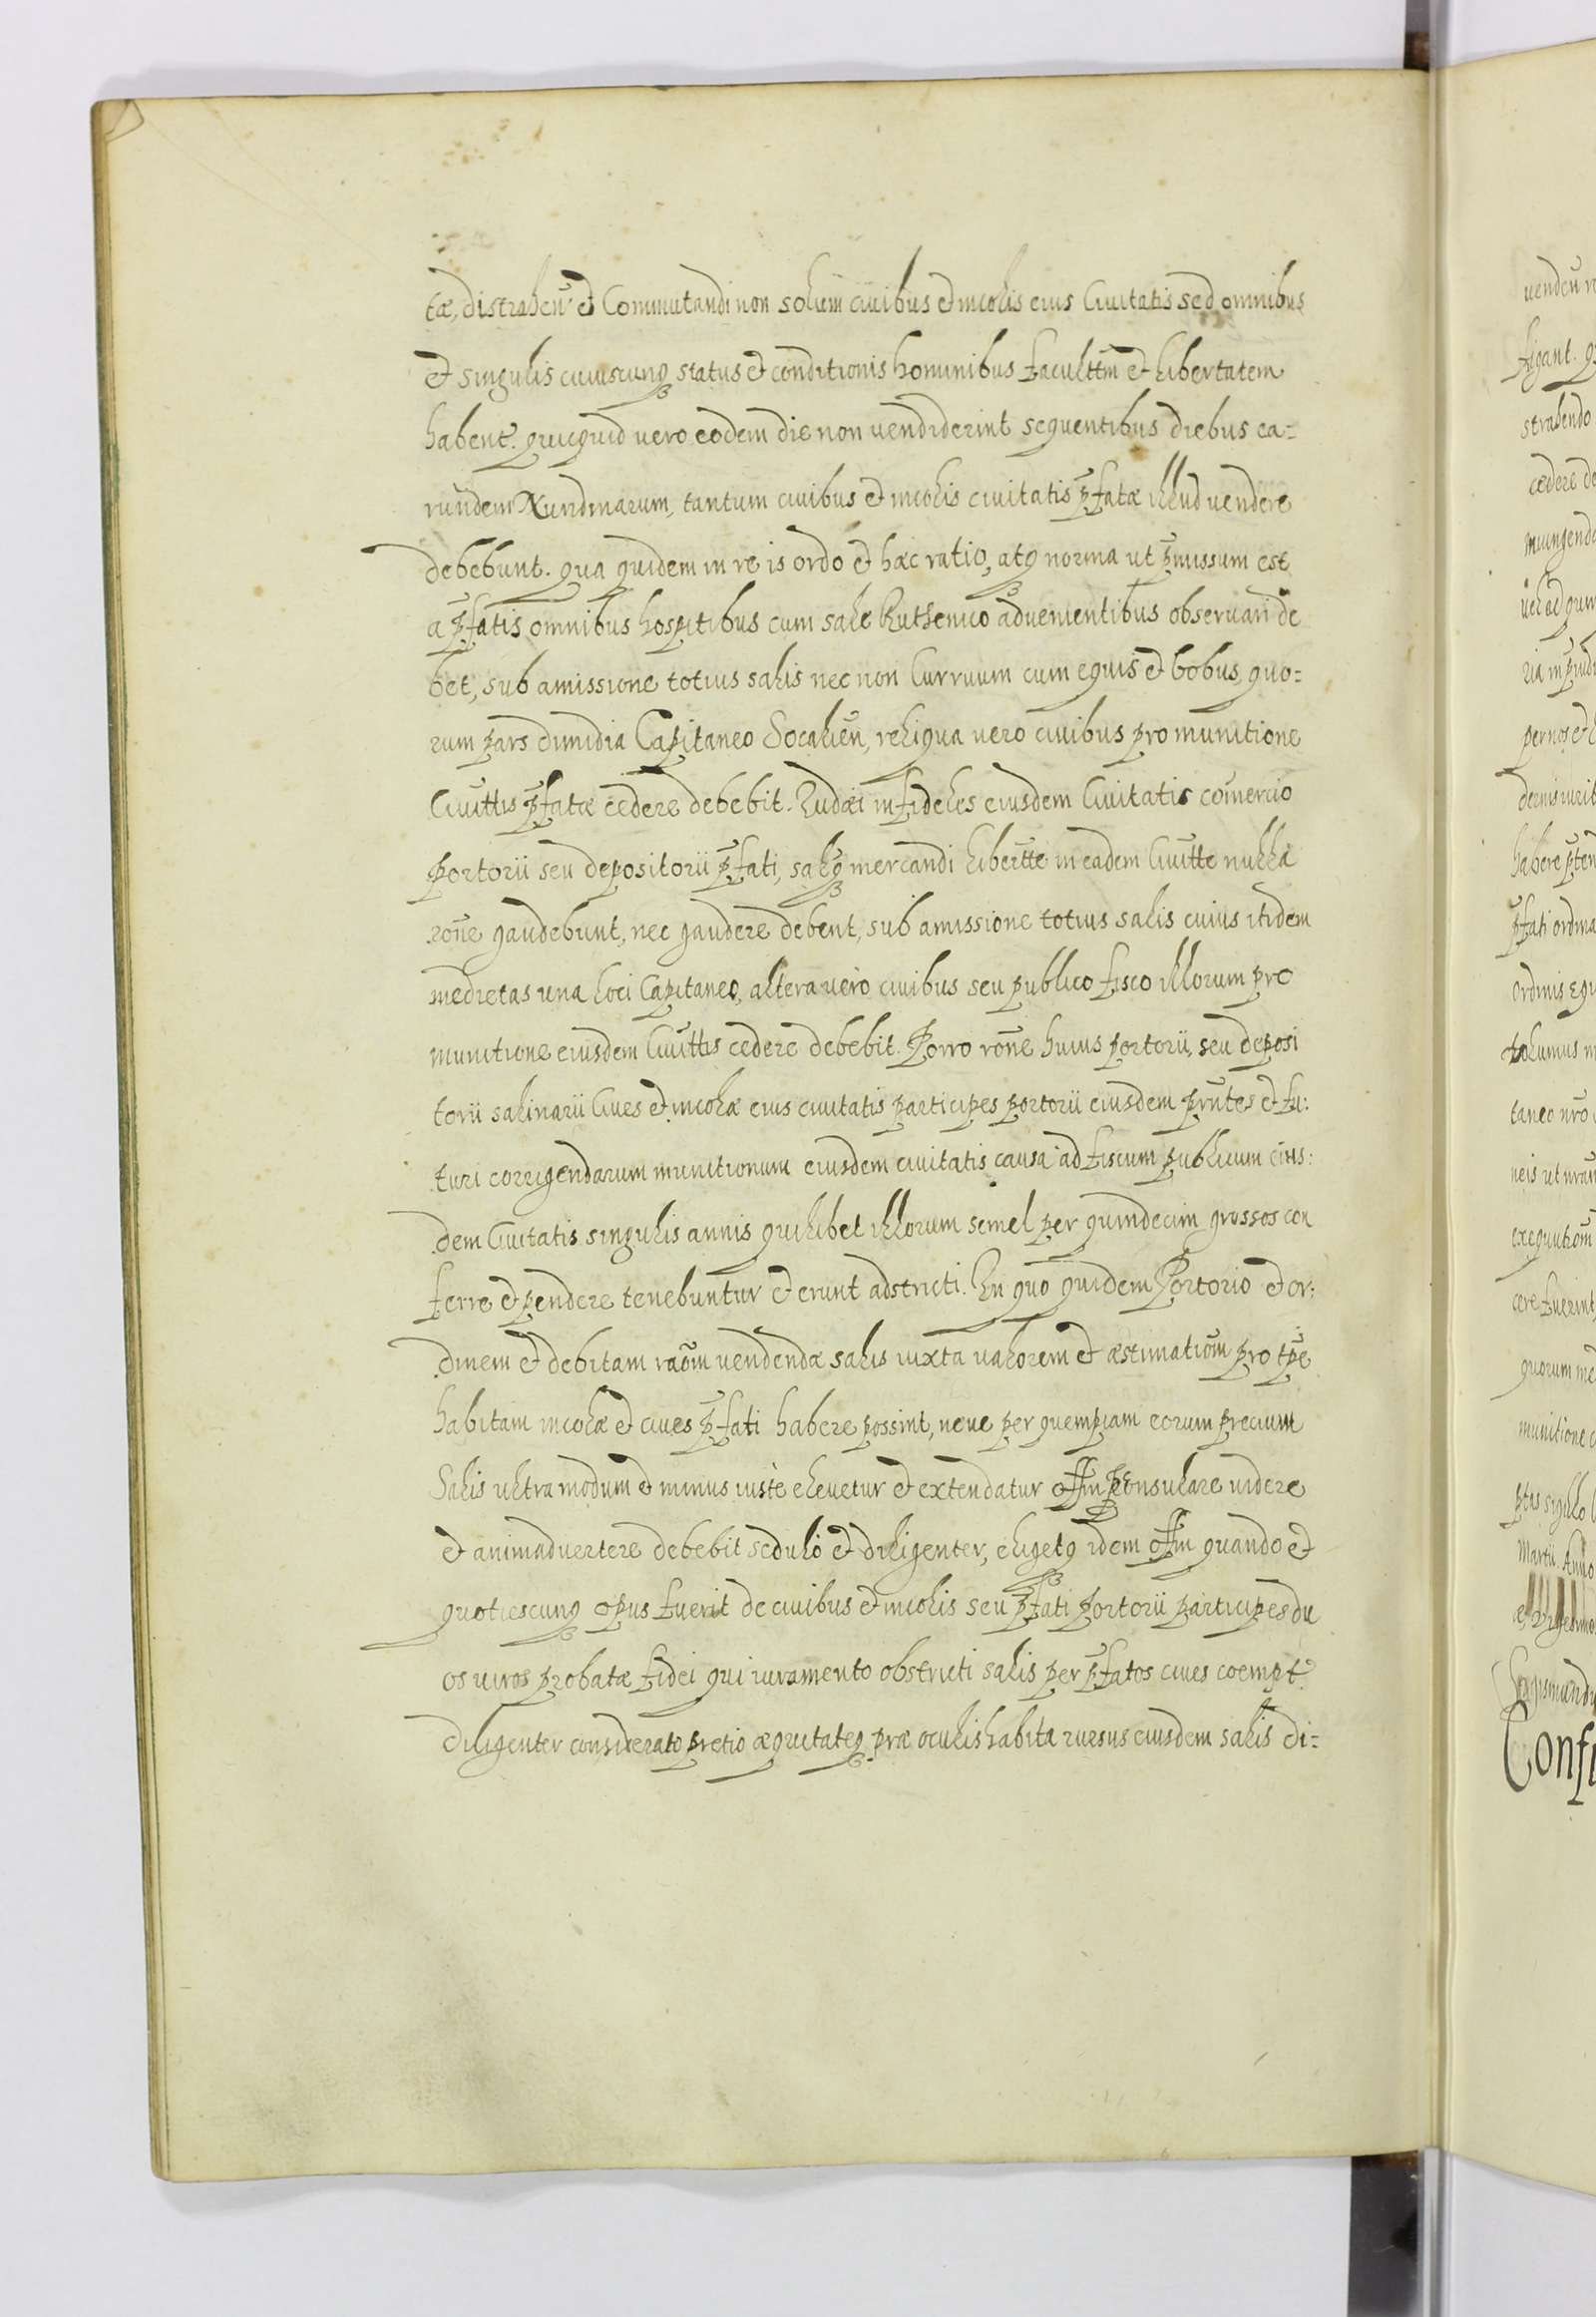 tæ, distrahen̄ et Commutandi non solum ciuibus et incolis eius Ciuitatis sed omnibus
et singulis cuiuscunq3 status et conditionis hominibus facultt̄m et libertatem
habent. quicquid uero eodem die non uendiderint sequentibus diebus ea=
rundem Nundinarum, tantum ciuibus et incolis ciuitatis p̄fatæ illud uendere
debebunt. qua quidem in re is ordo et hæc ratio, atq3 norma ut p̄missum est
a p̄fatis omnibus hospitibus cum sale Ruthenico aduenientibus obseruari de
bet, sub amissione totius salis nec non Curruum cum equis et bobus, quo=
rum pars dimidia Capitaneo Socalien̄, reliqua uero ciuibus pro munitione
Ciuittis p̄fatæ cedere debebit. Iudæi infideles eiusdem Ciuitatis com̄ercio
portorii seu depositorii p̄fati, salisq3 mercandi libertt̄e in eadem Ciuitt̄e nulla
rōne gaudebunt, nec gaudere debent, sub amissione totius salis cuius itidem
medietas una loci Capitaneo, altera uero ciuibus seu publico fisco illorum pro
munitione eiusdem Ciuitt̄is cedere debebit. Porro rōne huius portorii, seu deposi
torii salinarii Ciues et incolæ eius ciuitatis participes portorii eiusdem pn̄tes et fu:
turi corrigendarum munitionum eiusdem ciuitatis causa ad fiscum publicum eius:
dem Ciuitatis singulis annis quilibet illorum semel per quindecim grossos con
ferre et pendere tenebuntur et erunt adstricti. In quo quidem Portorio et or:
dinem et debitam raōm uendendæ salis iuxta ualorem et æstimatiōm pro tp̄e
habitam incolæ et ciues p̄fati habere possint, neue per quempiam eorum precium
Salis ultra modum et minus iuste eleuetur et extendatur offm̄ consulare uidere
et animaduertere debebit sedulo et diligenter, eligetq3 idem offm̄ quando et
quotiescunq3 opus fuerit de ciuibus et incolis seu p̄fati portorii participes du
os uiros probatæ fidei qui iuramento obstricti salis per p̄fatos ciues coempt
diligenter considerato pretio æquitateq3 præ oculis habita rursus eiusdem salis di=